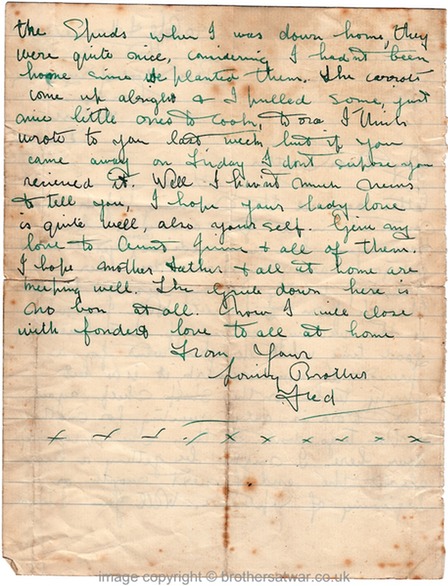 the Spuds when I was down home, they
were quite nice, considering I hadn't been
home since we planted them. The carrots
come up alright & I pulled some, just
nice little ones to cook, I think
wrote to you last week but if you
came away on Friday I dont supose you
recieved it. Well I havent much news
to tell you, I hope your lady love
is quite well, also yourself Give my
love to Aunt & all of them.
I hope mother Father & all at home are
keeping well. The down here is
no bon at all. Now I will close
with fondest love to all at home
From Your
Loving Brother
Fred
x x x x x x x x x x
image copyright © brothersatwar.co.uk